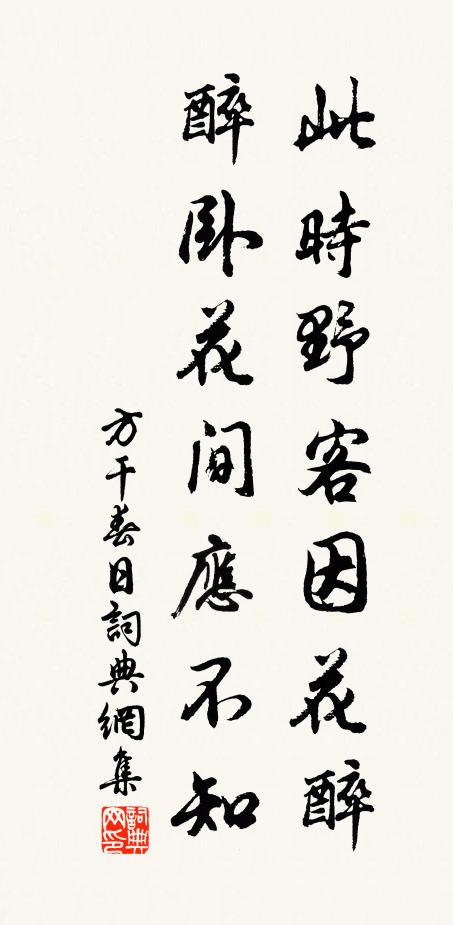 此時野客因花醉
醉卧花間應不知
方干春日詞典網集
詞典网印